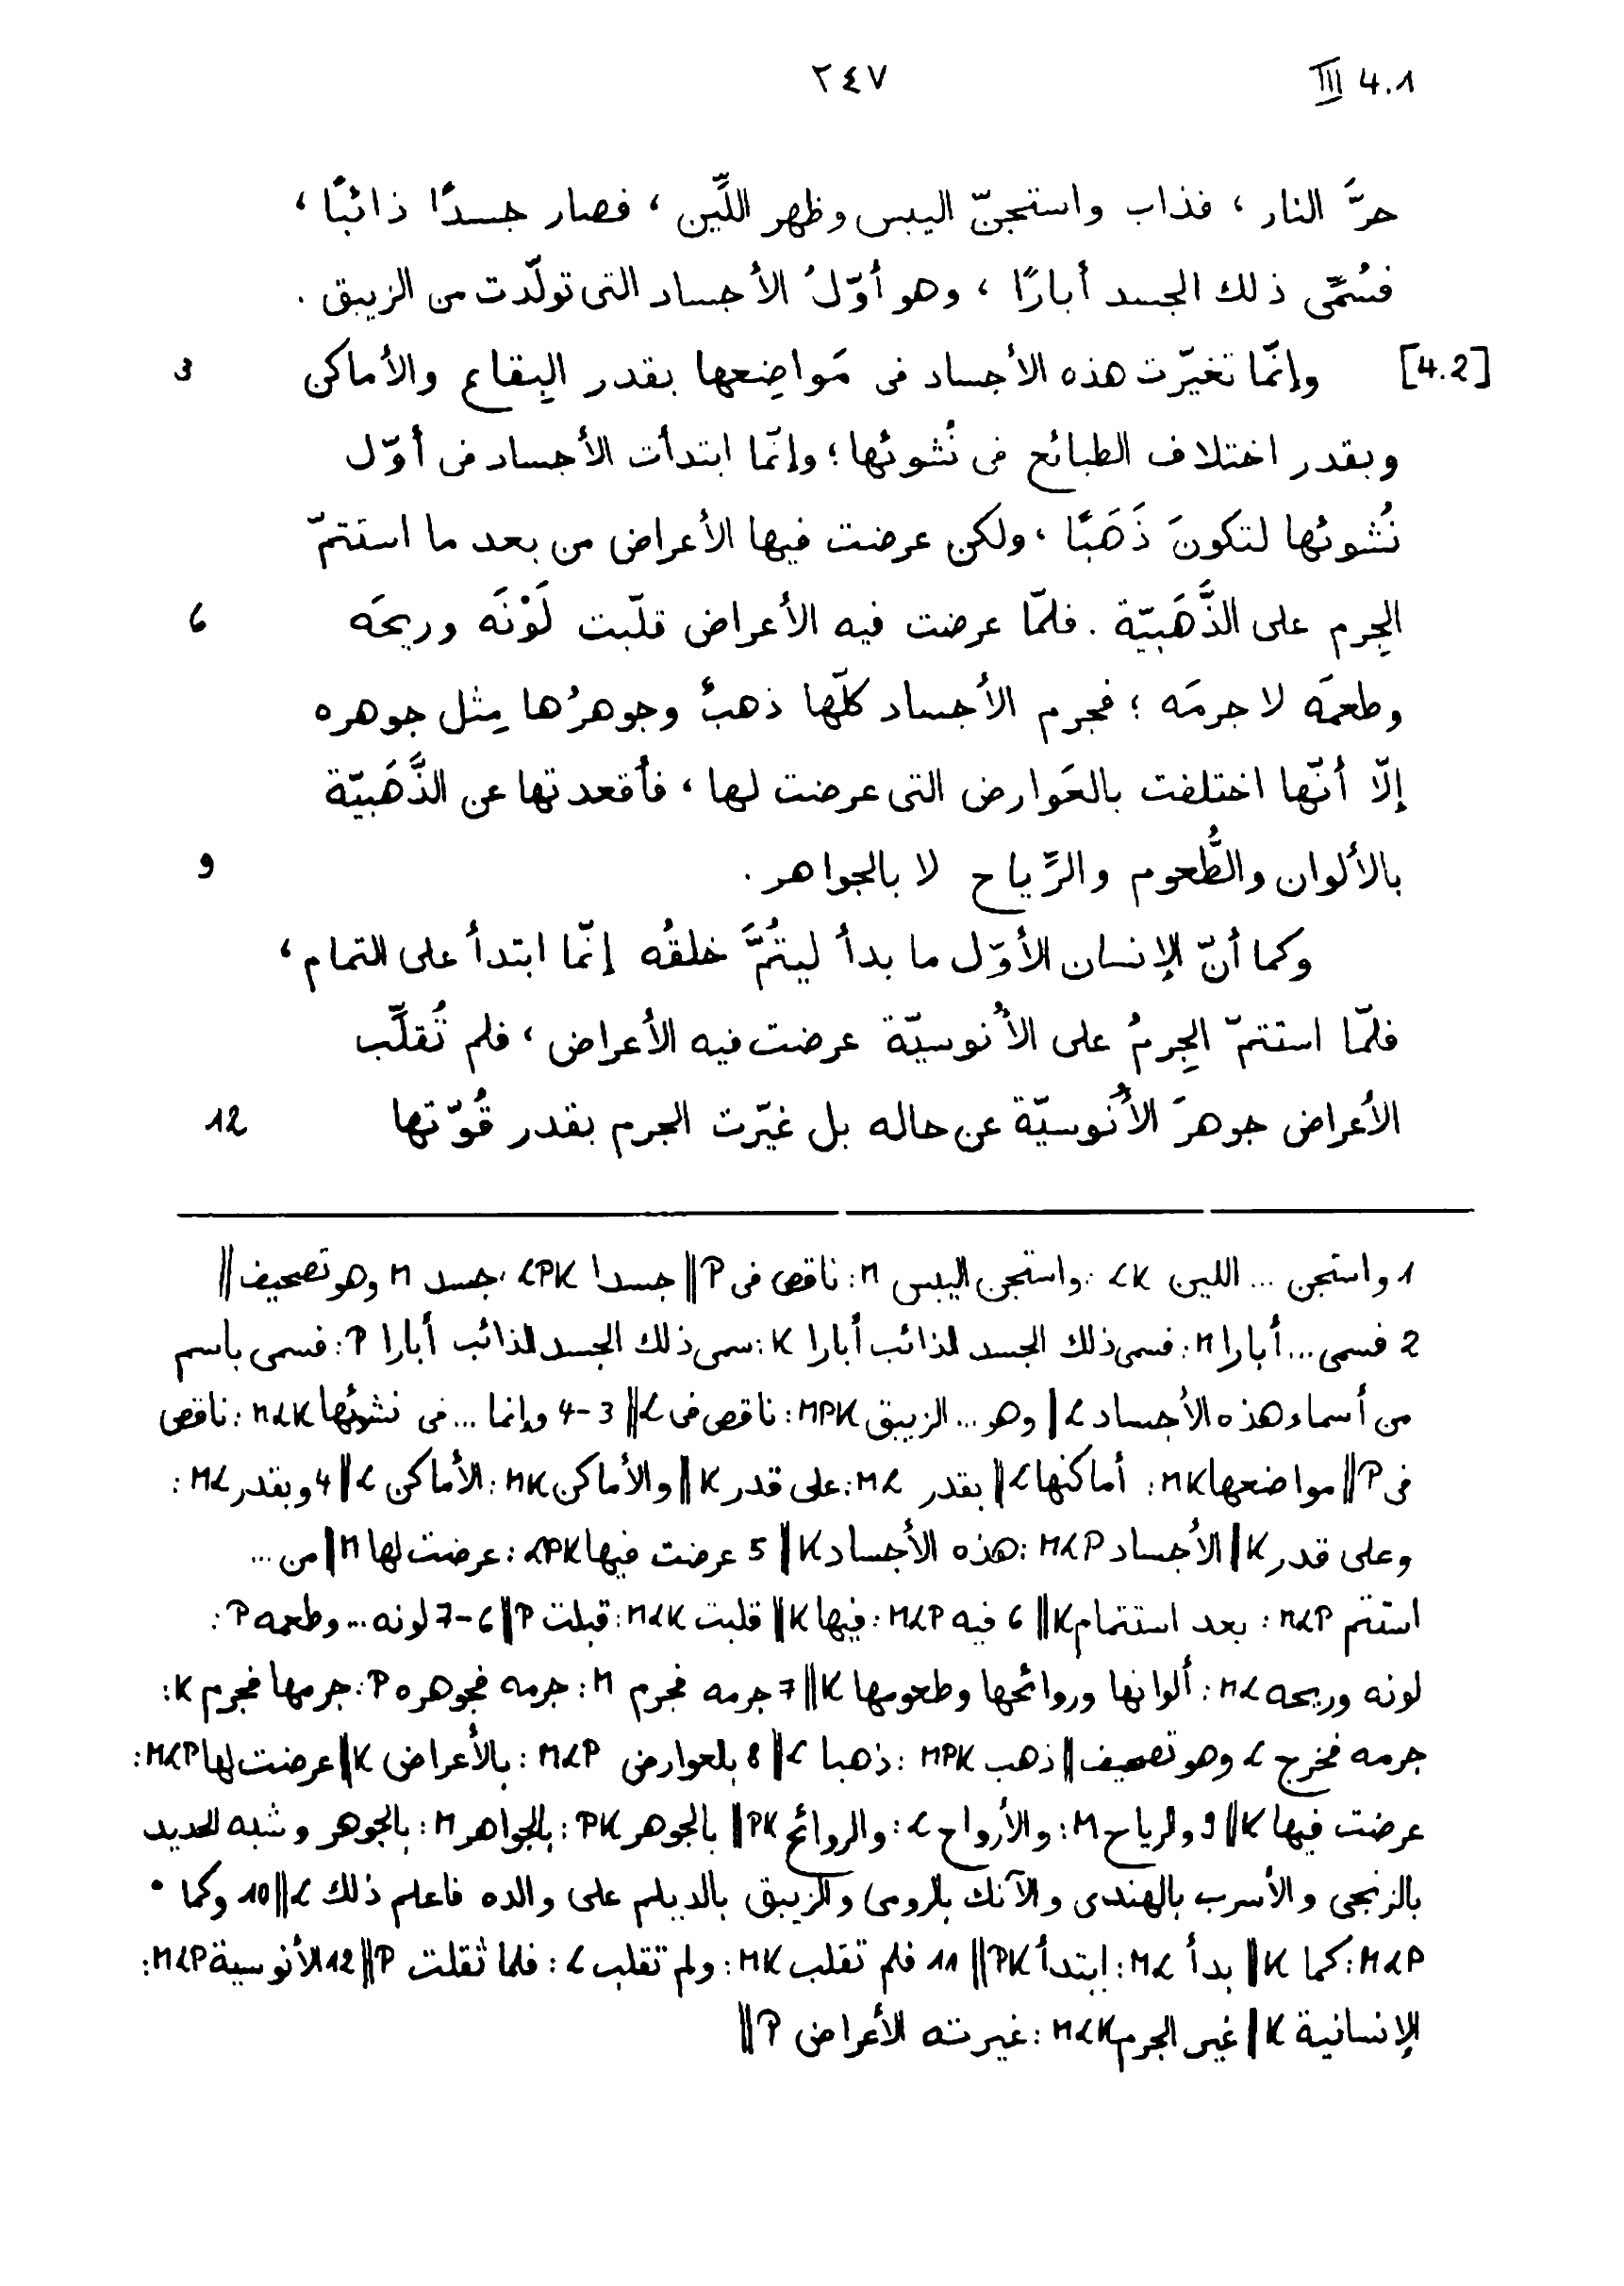 ٢٤٧ III 4.1
حرَّ النار ، فذاب واستجنّ اليبس وظهر اللِّين ، فصار جسدًا ذائبًا ،
فسُمِّى ذلك الجسد أبارًا ، وهو أوّلُ الأجساد التى تولّدت من الزيبق .
[4.2] وإنّما تغيّرت هذه الأجساد فى مَواضِعها بقدر البِقاع والأماكن 3
وبقدر اختلاف الطبائع فى نُشوئها ؛ وإنّما ابتدأت الأجساد فى أوّل
نُشوئها لتكونَ ذَهَبًا ، ولكن عرضت فيها الأعراض من بعد ما استتمّ
الجِرم على الذَّهَبيّة . فلمّا عرضت فيه الأعراض قلّبت لَوْنَه وريحَه 6
وطعمَه لا جرمَه ؛ فجرم الأجساد كلّها ذهبٌ وجوهرُها مِثل جوهره
إلّا أنّها اختلفت بالعَوارض التى عرضت لها ، فأقعدتها عن الذَّهَبيّة
بالألوان والطُّعوم والرِّياح لا بالجواهر . 9
وكما أنّ الإنسان الأوّل ما بدأ ليتُمَّ خلقُه إنّما ابتدأ على التمام ،
فلمّا استتمّ الجِرمُ على الأُنوسيّة عرضت فيه الأعراض ، فلم تُقلِّب
الأعراض جوهرَ الأُنوسيّة عن حاله بل غيّرت الجرم بقدر قُوّتها 12
1 واستجن ... اللين LK : واستجن اليبس M : ناقص فى P || جسدا LPK ، جسد M وهو تصحيف ||
2 فسمى ... أبارا M : فسمى ذلك الجسد الذائب أبارا K : سمى ذلك الجسد الذائب أبارا P : فسمى باسم
من أسماء هذه الأجساد L || وهو ... الزيبق MPK : ناقص فى L || 3-4 وإنما ... فى نشوئها MLK : ناقص
فى P || مواضعها MK : أماكنها L || بقدر ML : على قدر K || والأماكن MK : الأماكن L || 4 وبقدر ML :
وعلى قدر K || الأجساد MLP : هذه الأجساد K || 5 عرضت فيها LPK : عرضت لها M || من ...
استتم MLP : بعد استتمام K || 6 فيه MLP : فيها K || قلبت MLK : قبلت P || 6-7 لونه ... وطعمه P :
لونه وريحه ML : ألوانها وروائحها وطعومها K || 7 جرمه فجرم M : جرمه فجوهره P : جرمها فجرم K :
جرمه فخرج L وهو تصحيف || ذهب MPK : ذهبا L || 8 بالعوارض MLP : بالأعراض K || عرضت لها MLP :
عرضت فيها K || 9 والرياح M : والأرواح L : والروائح PK || بالجوهر PK : بالجواهر M : بالجوهر وشبه الحديد
بالزنجى والأسرب بالهندى والآنك بالرومى والزيبق بالديلم على والده فاعلم ذلك L || 10 وكما
MLP : كما K || بدأ ML : ابتدأ PK || 11 فلم تقلب MK : ولم تقلب L : فلما ثقلت P || 12 الأنوسية MLP :
الإنسانية K || غير الجرم MLK : غيرته الأعراض P ||